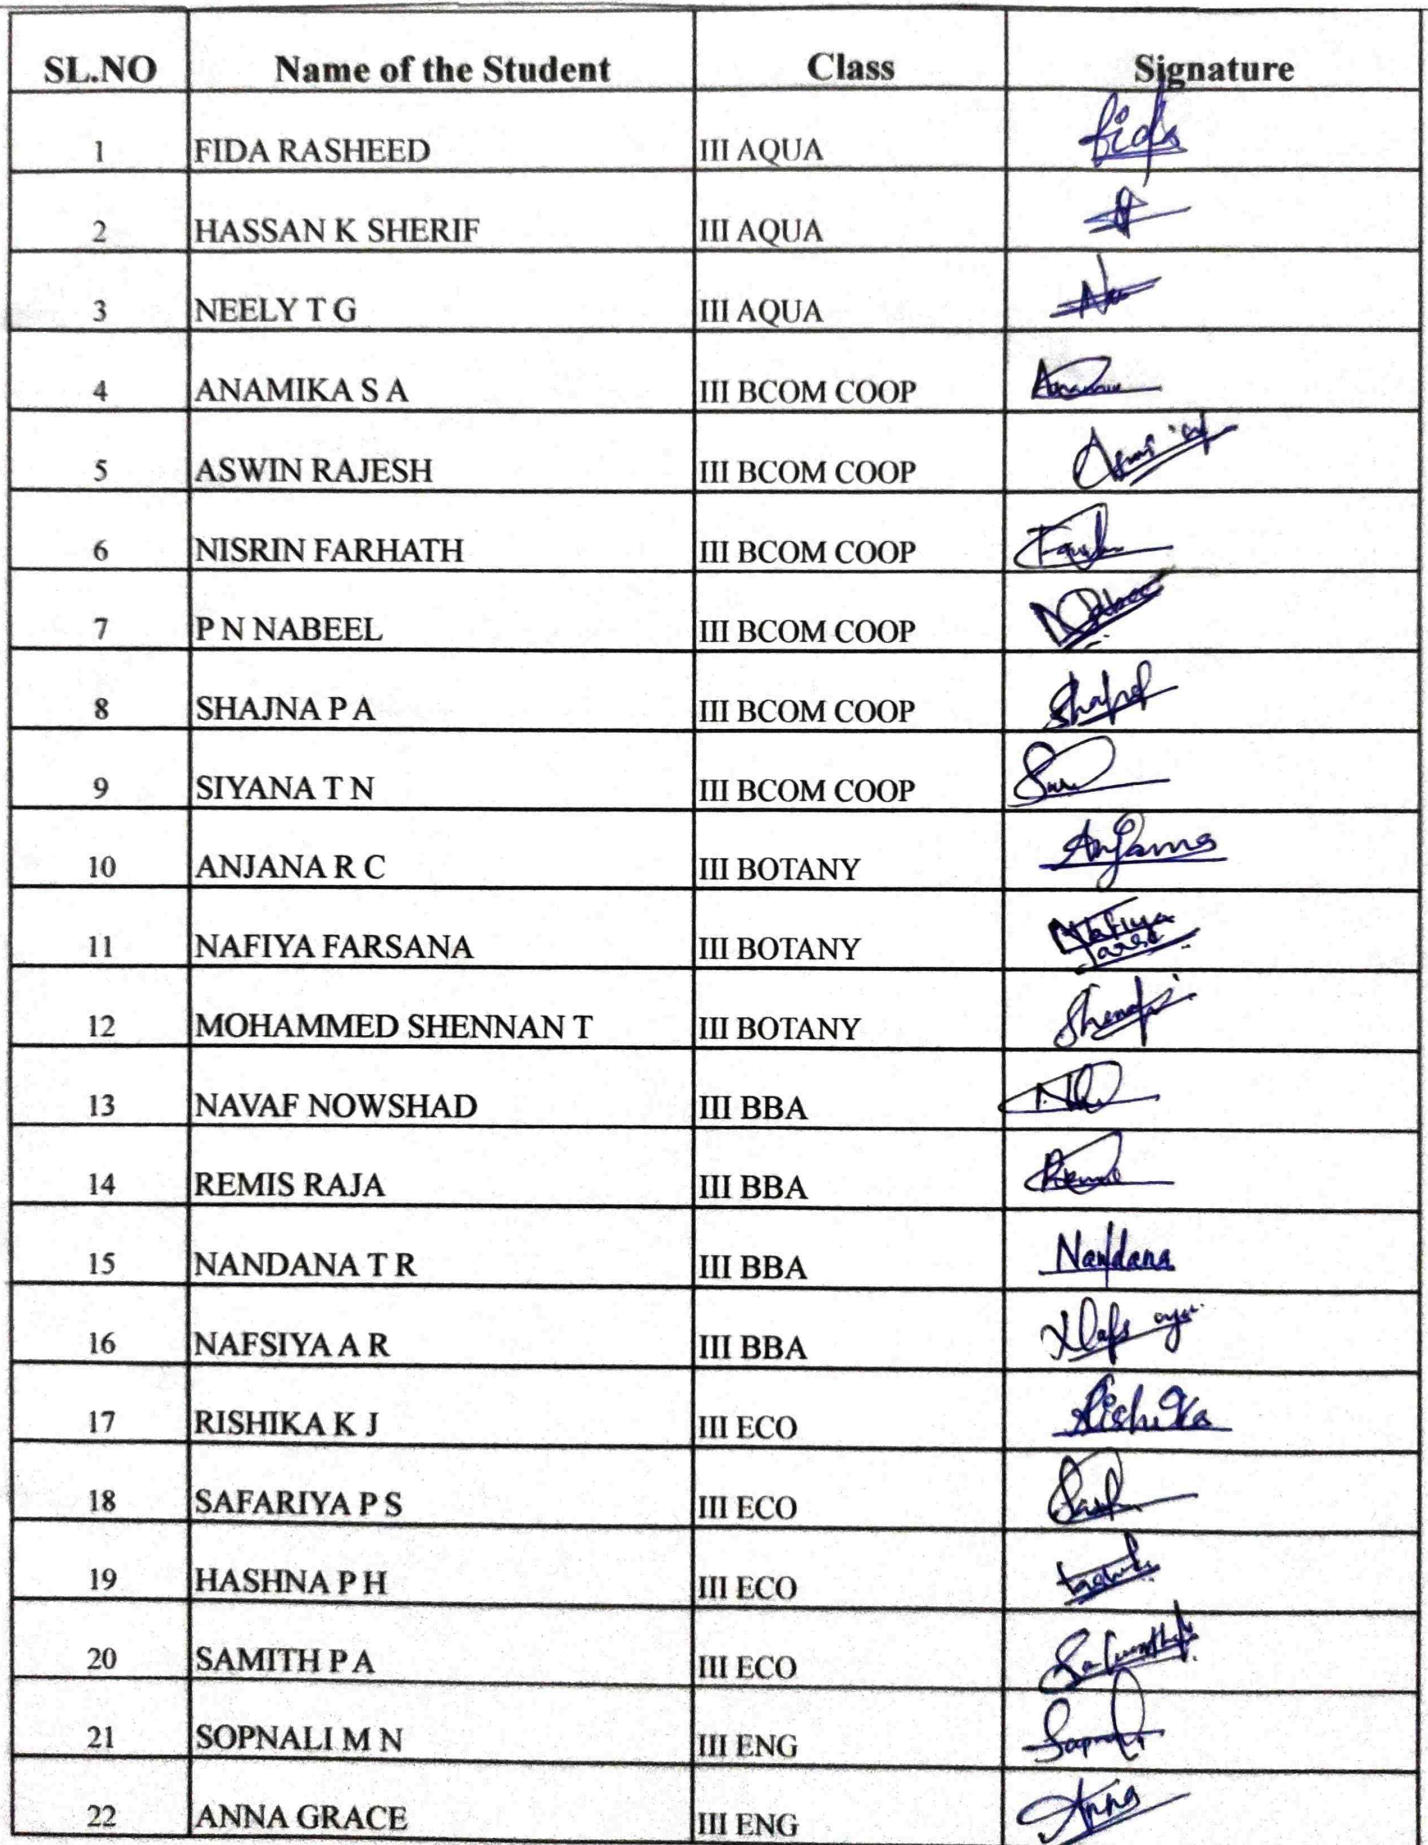 SL.NO Name of the Student Class Signature
1 FIDA RASHEED III AQUA fida
2 HASSAN K SHERIF III AQUA
3 NEELY T G III AQUA
4 ANAMIKA S A III BCOM COOP
5 ASWIN RAJESH III BCOM COOP
6 NISRIN FARHATH III BCOM COOP
7 P N NABEEL III BCOM COOP
8 SHAJNA P A III BCOM COOP
9 SIYANA T N III BCOM COOP
10 ANJANA R C III BOTANY Anjana
11 NAFIYA FARSANA III BOTANY Nafiya
12 MOHAMMED SHENNAN T III BOTANY
13 NAVAF NOWSHAD III BBA
14 REMIS RAJA III BBA
15 NANDANA T R III BBA Nandana
16 NAFSIYA A R III BBA
17 RISHIKA K J III ECO Rishika
18 SAFARIYA P S III ECO
19 HASHNA P H III ECO
20 SAMITH P A III ECO
21 SOPNALI M N III ENG
22 ANNA GRACE III ENG Anna